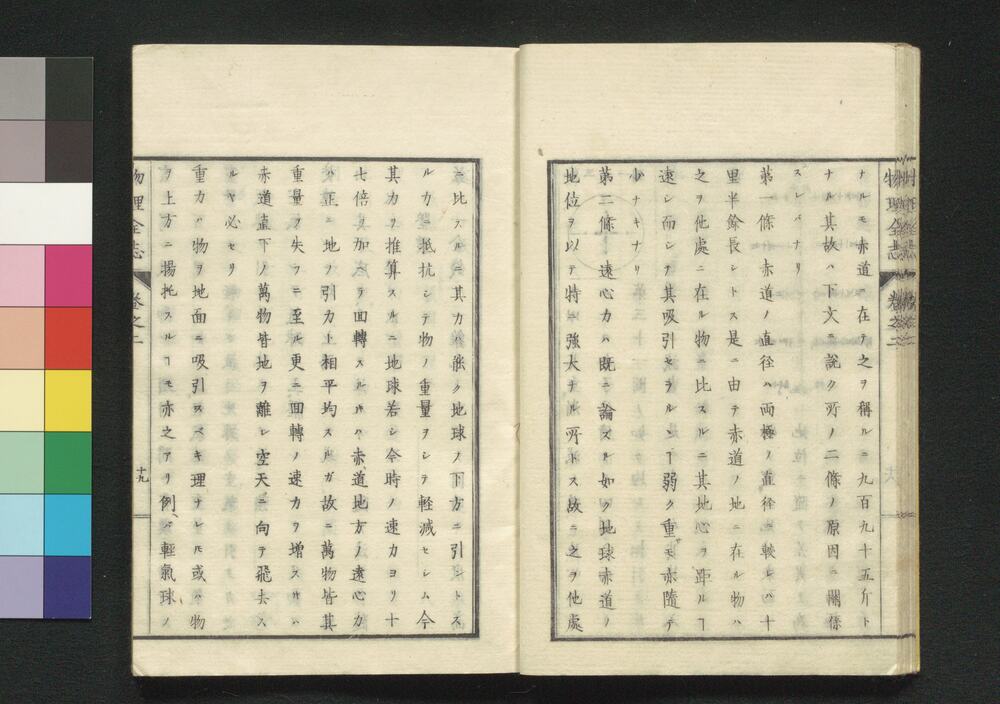 物理全志 卷之二
ナルモ赤道ニ在テ之ヲ稱ルニ九百九十五斤ト
ナル其故ハ下文ニ説ク所ノ二條ノ原因ニ關係
スレバナリ
第一條 赤道ノ直徑ハ兩極ノ直徑ニ較レバ十
里半餘長シトス是ニ由テ赤道ノ地ニ在ル物ハ
之ヲ他處ニ在ル物ニ比スルニ其地心ヲ距ルヿ
速シ而シテ其吸引セラルヽヿ弱ク重サモ亦隨テ
少ナキナリ
第二條 遠心力ハ既ニ論ズル如ク地球赤道ノ
地位ヲ以テ特ニ強大ナル所トス故ニ之ヲ他處
ニ比スルニ其力能ク地球ノ下方ニ引ントス
ルカニ抵抗シテ物ノ重量ヲシテ輕減セシム今
其力ヲ推算スルニ地球若シ今時ノ速力ヨリ十
七倍ヲ加ヘテ回轉スル片ハ赤道地方ノ遠心力
ハ正ニ地ノ引力ト相平均スルガ故ニ萬物皆其
重量ヲ失フニ至ル更ニ回轉ノ速力ヲ増ス片ハ
赤道直下ノ萬物皆地ヲ離レ空天ニ向テ飛去ス
ルヤ必セリ
重力ハ物ヲ地面ニ吸引スベキ理ナレ𪜈或ハ物
ヲ上方ニ揚托スルヿモ亦之アリ例ヘバ輕氣球ノ
物理全志 卷之二 十九